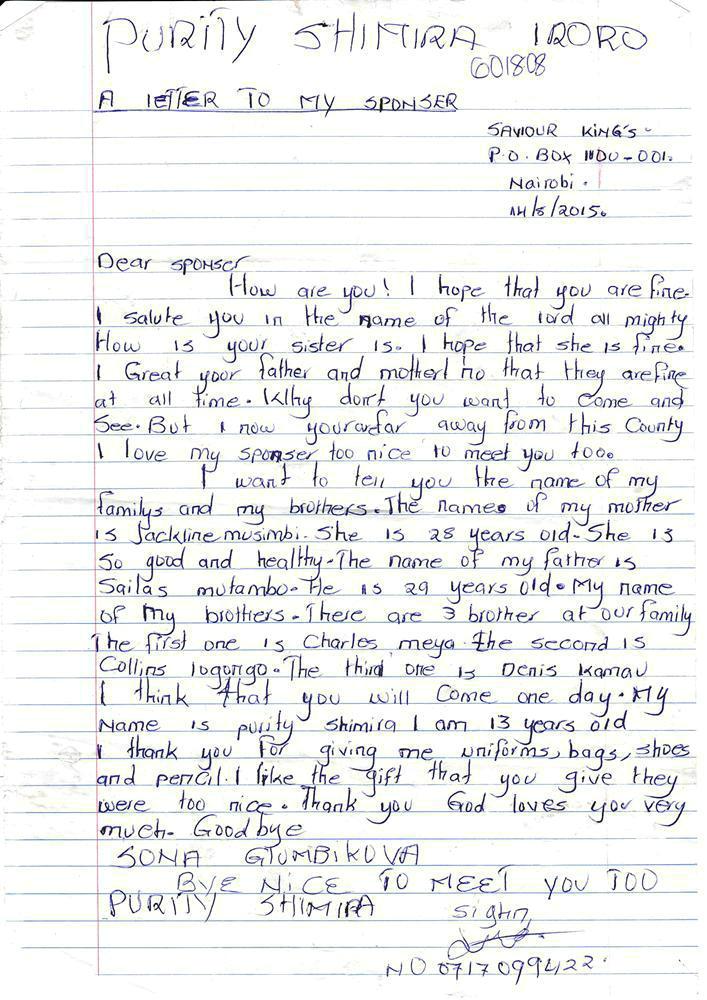 PURITY SHIMIRA IRORO
601808
A lETTER TO MY SPONSER
SAVIOUR KING'S
P.O. BOX 1100-001.
Nairobi.
14/8/2015.
Dear SPONSER
How are you! I hope that you are fine.
I salute you in the name of the lord all mighty
How is your sister is. I hope that she is fine.
I Great your father and motherI ho that they are fine
at all time. Why don't you want to come and
See. But I now your far away from this County
I love my sponser too nice to meet you too.
I want to tell you the name of my
familys and my brothers. The names of my mother
is Jackline musimbi. She is 28 years old. She is
So good and healthy. The name of my father is
Sailas mutambo. He is 29 years old. My name
of my brothers. There are 3 brother at our family
The first one is Charles meya. the second is
Collins logongo. The third one is Denis Kamau
I think that you will Come one day. My
Name is purity shimira I am 13 years old
I thank you for giving me uniforms, bags, shoes
and pencil. I like the gift that you give they
were too nice. Thank you God loves you very
much. Goodbye
SONA GTUMBIKOVA
BYE NICE TO MEET YOU TOO
PURITY SHIMIRA
Sighn
NO 0717099422.